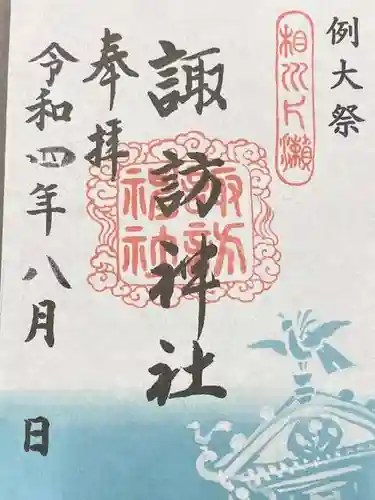 例大祭
相州片瀬
諏訪神社
諏訪
神社
奉拝
令和四年八月 日